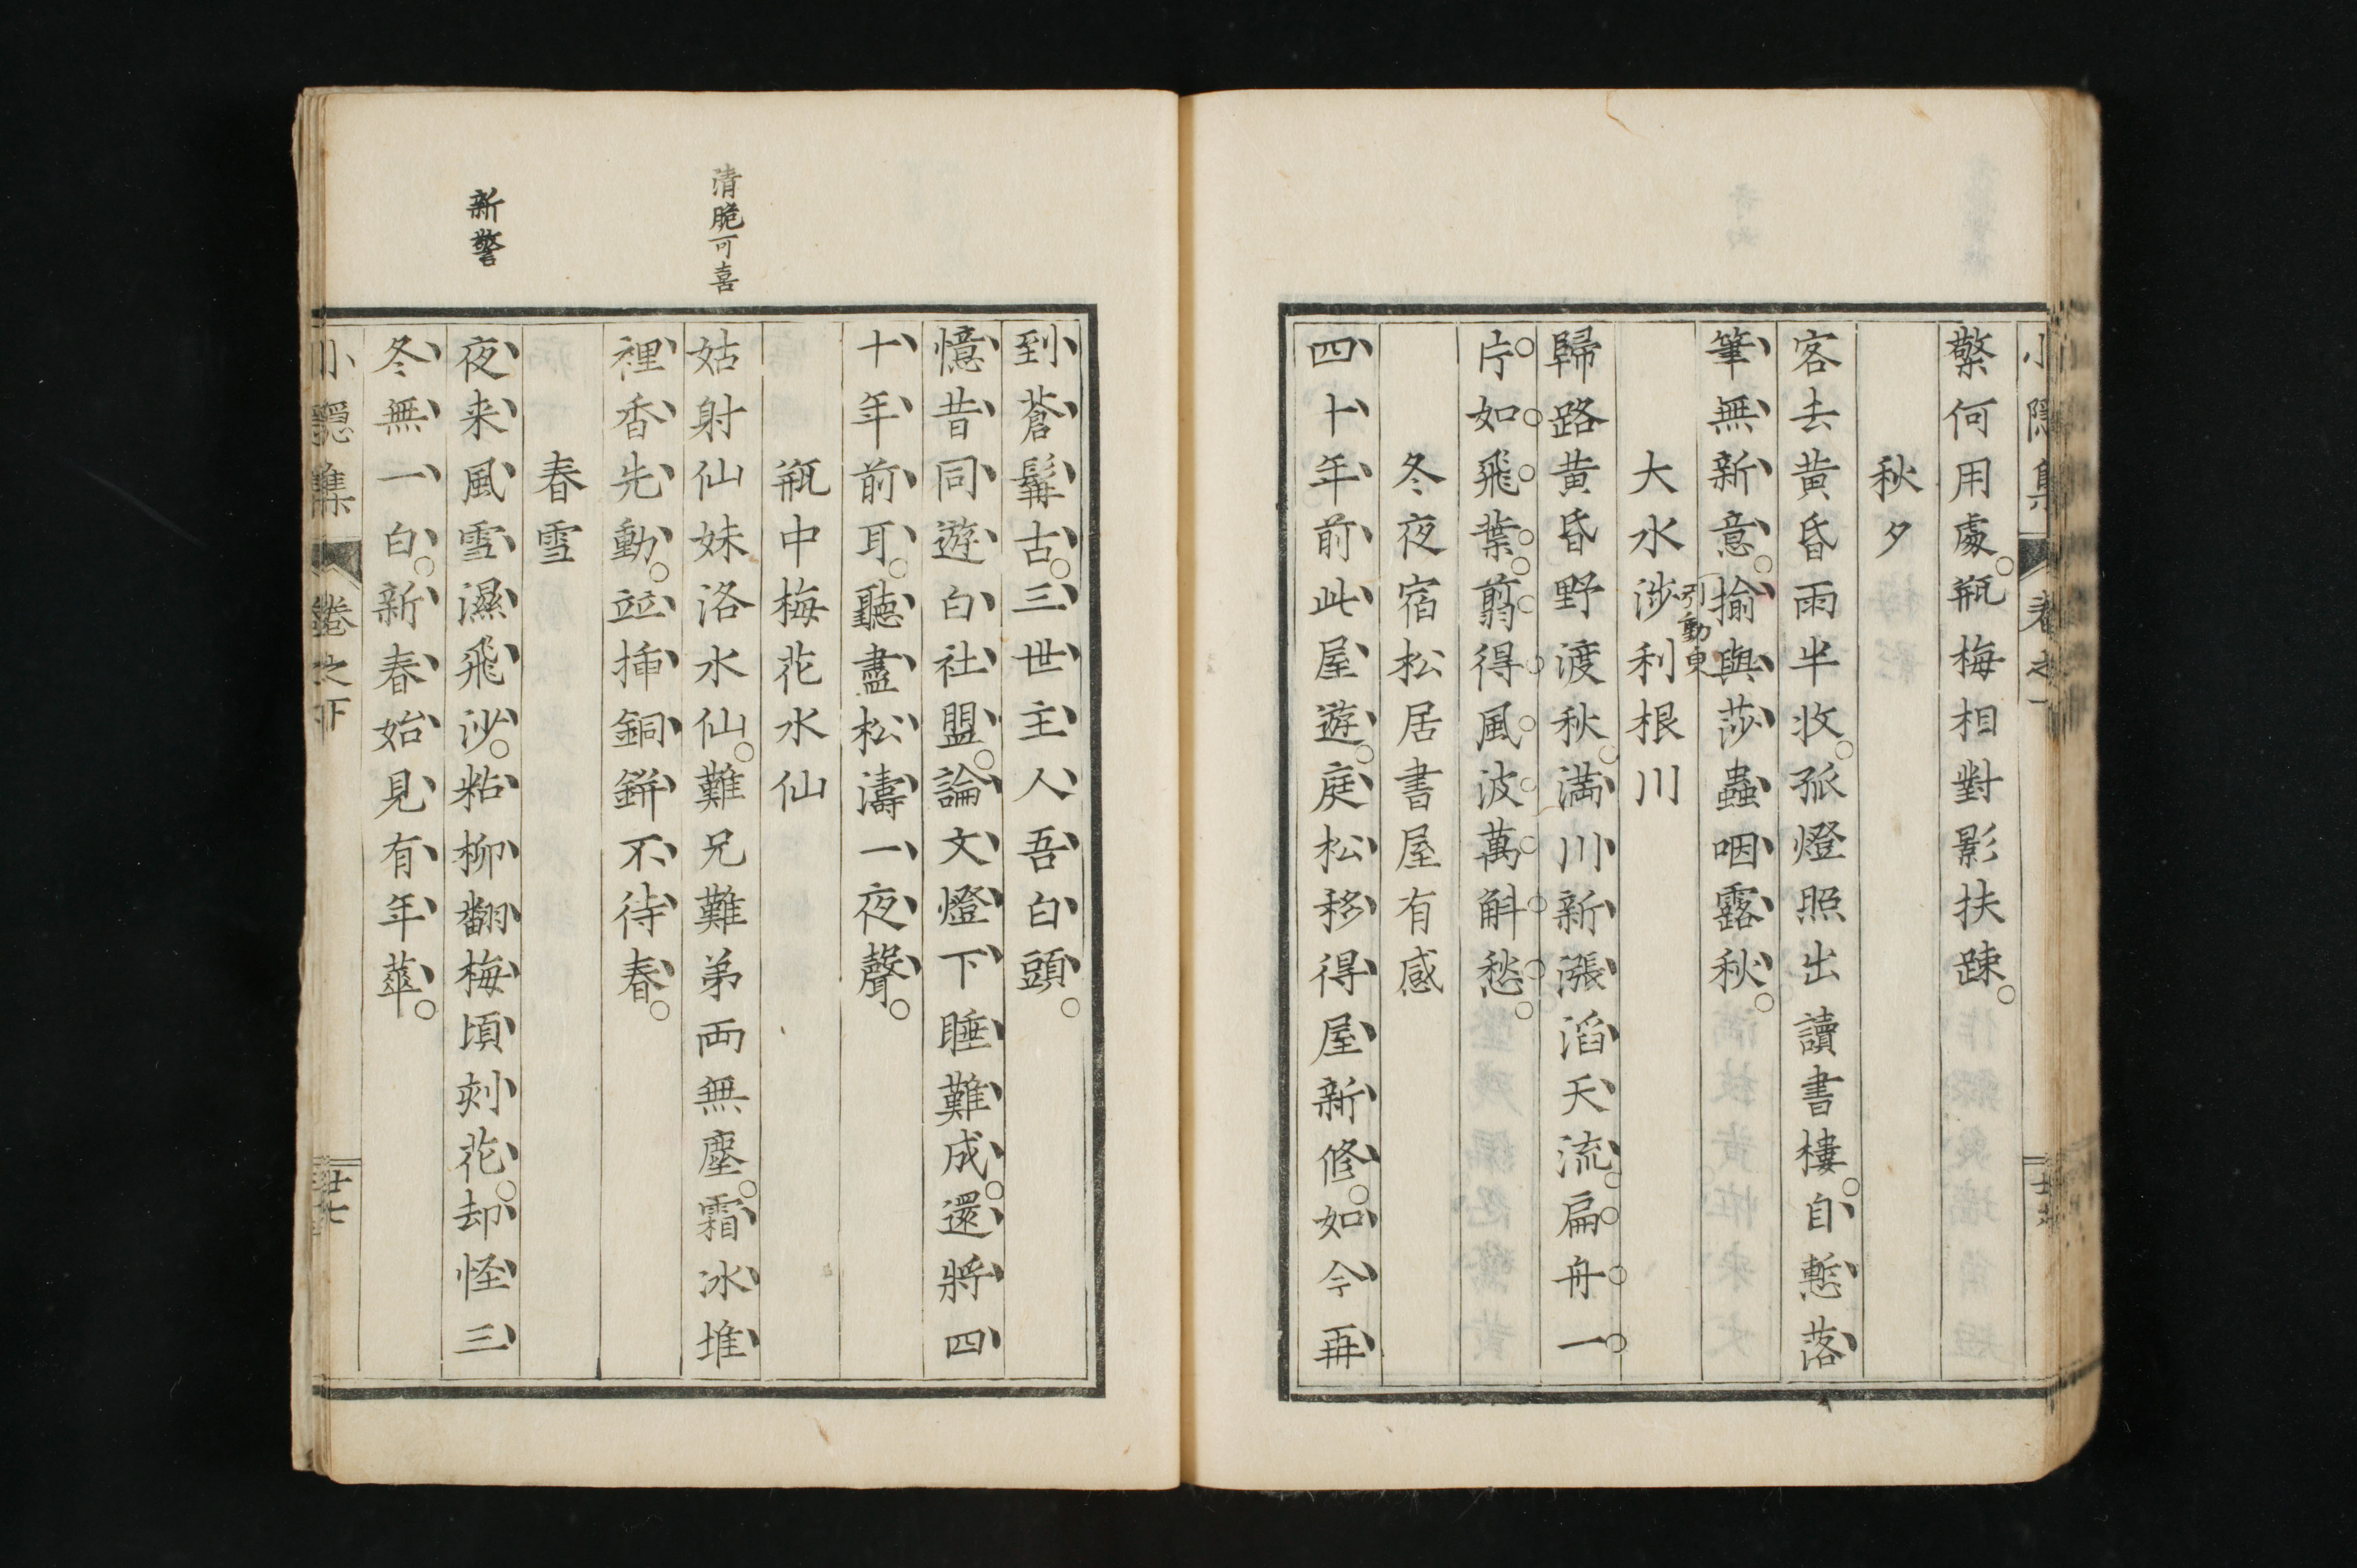 檠何用處。瓶梅相對影扶疎。
秋夕
客去黄昏雨半收。孤燈照出讀書樓。自慙落
筆無新意。揄與莎蟲咽露秋。
引動東
大水涉利根川
歸路黄昏野渡秋。満川新漲滔天流。扁舟一
片如飛葉。翦得風波萬斛愁。
冬夜宿松居書屋有感
四十年前此屋遊。庭松移得屋新修。如今再
到蒼髯古。三世主人吾白頭。
憶昔同遊白社盟。論文燈下睡難成。還將四
十年前耳。聽盡松濤一夜聲。
瓶中梅花水仙
清脆可喜
姑射仙妹洛水仙。難兄難弟両無塵。霜冰堆
裡香先動。竝挿銅鉼不待春。
春雪
新警
夜来風雪濕飛沙。粘柳翻梅頃刻花。却怪三
冬無一白。新春始見有年華。
小隱集 卷之下 廿七